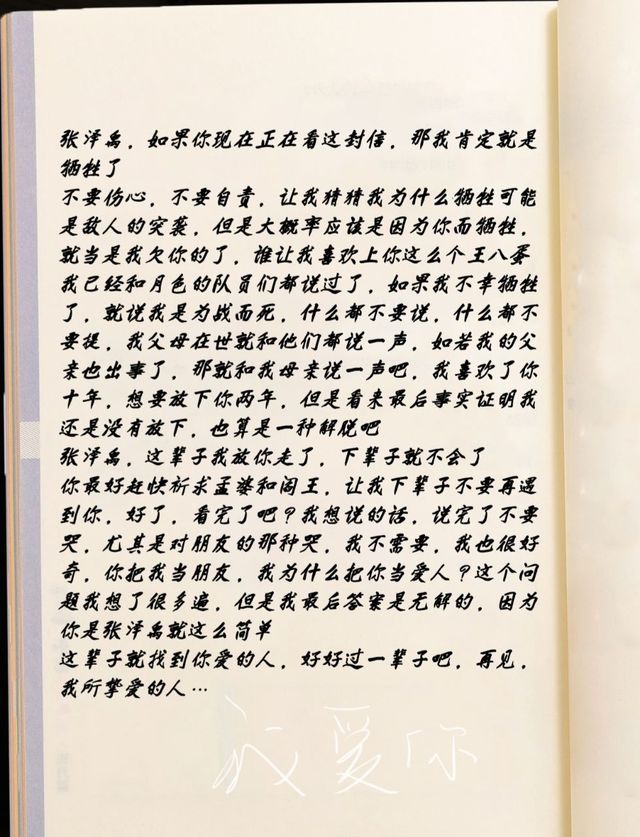 张泽禹，如果你现在正在看这封信，那我肯定就是
牺牲了
不要伤心，不要自责，让我猜猜我为什么牺牲可能
是敌人的突袭，但是大概率应该是因为你而牺牲，
就当是我欠你的了，谁让我喜欢上你这么个王八蛋
我已经和月色的队员们都说过了，如果我不幸牺牲
了，就说我是为战而死，什么都不要说，什么都不
要提，我父母在世就和他们都说一声，如若我的父
亲也出事了，那就和我母亲说一声吧，我喜欢了你
十年，想要放下你两年，但是看来最后事实证明我
还是没有放下，也算是一种解脱吧
张泽禹，这辈子我放你走了，下辈子就不会了
你最好赶快祈求孟婆和阎王，让我下辈子不要再遇
到你，好了，看完了吧？我想说的话，说完了不要
哭，尤其是对朋友的那种哭，我不需要，我也很好
奇，你把我当朋友，我为什么把你当爱人？这个问
题我想了很多遍，但是我最后答案是无解的，因为
你是张泽禹就这么简单
这辈子就找到你爱的人，好好过一辈子吧，再见，
我所挚爱的人…
我爱你